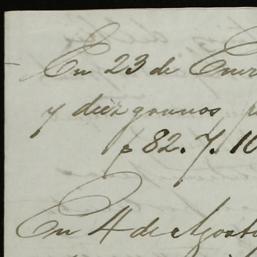 En 23 de Ener
y diez granos
$ 82.7.10
En 4 de Agosto